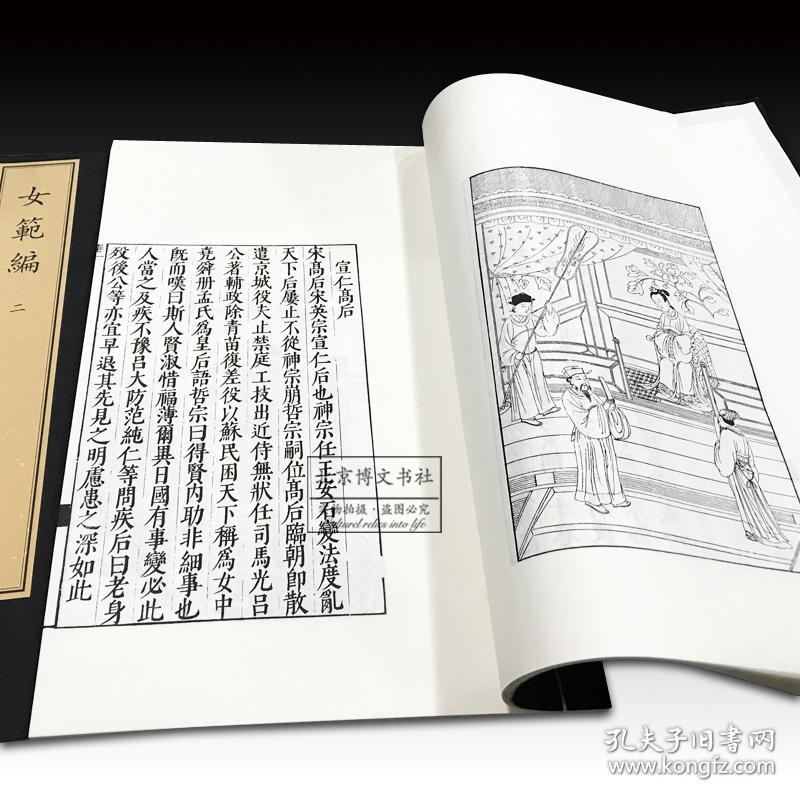 女範編 二
宣仁髙后
宋髙后宋英宗宣仁后也神宗任王安石變法度亂
天下后屢止不從神宗崩哲宗嗣位髙后臨朝卽散
遣京城役夫止禁庭工技出近侍無狀任司馬光呂
公著輔政除青苗復差役以蘇民困天下稱爲女中
堯舜册孟氏爲皇后語哲宗曰得賢内助非細事也
旣而嘆曰斯人賢淑惜福薄爾異日國有事變必此
人當之及疾不豫呂大防范純仁等問疾后曰老身
歿後公等亦宜早退其先見之明慮患之深如此
京博文书社
实物拍摄·盗图必究
relics into life
孔夫子旧书网
www.kongfz.com